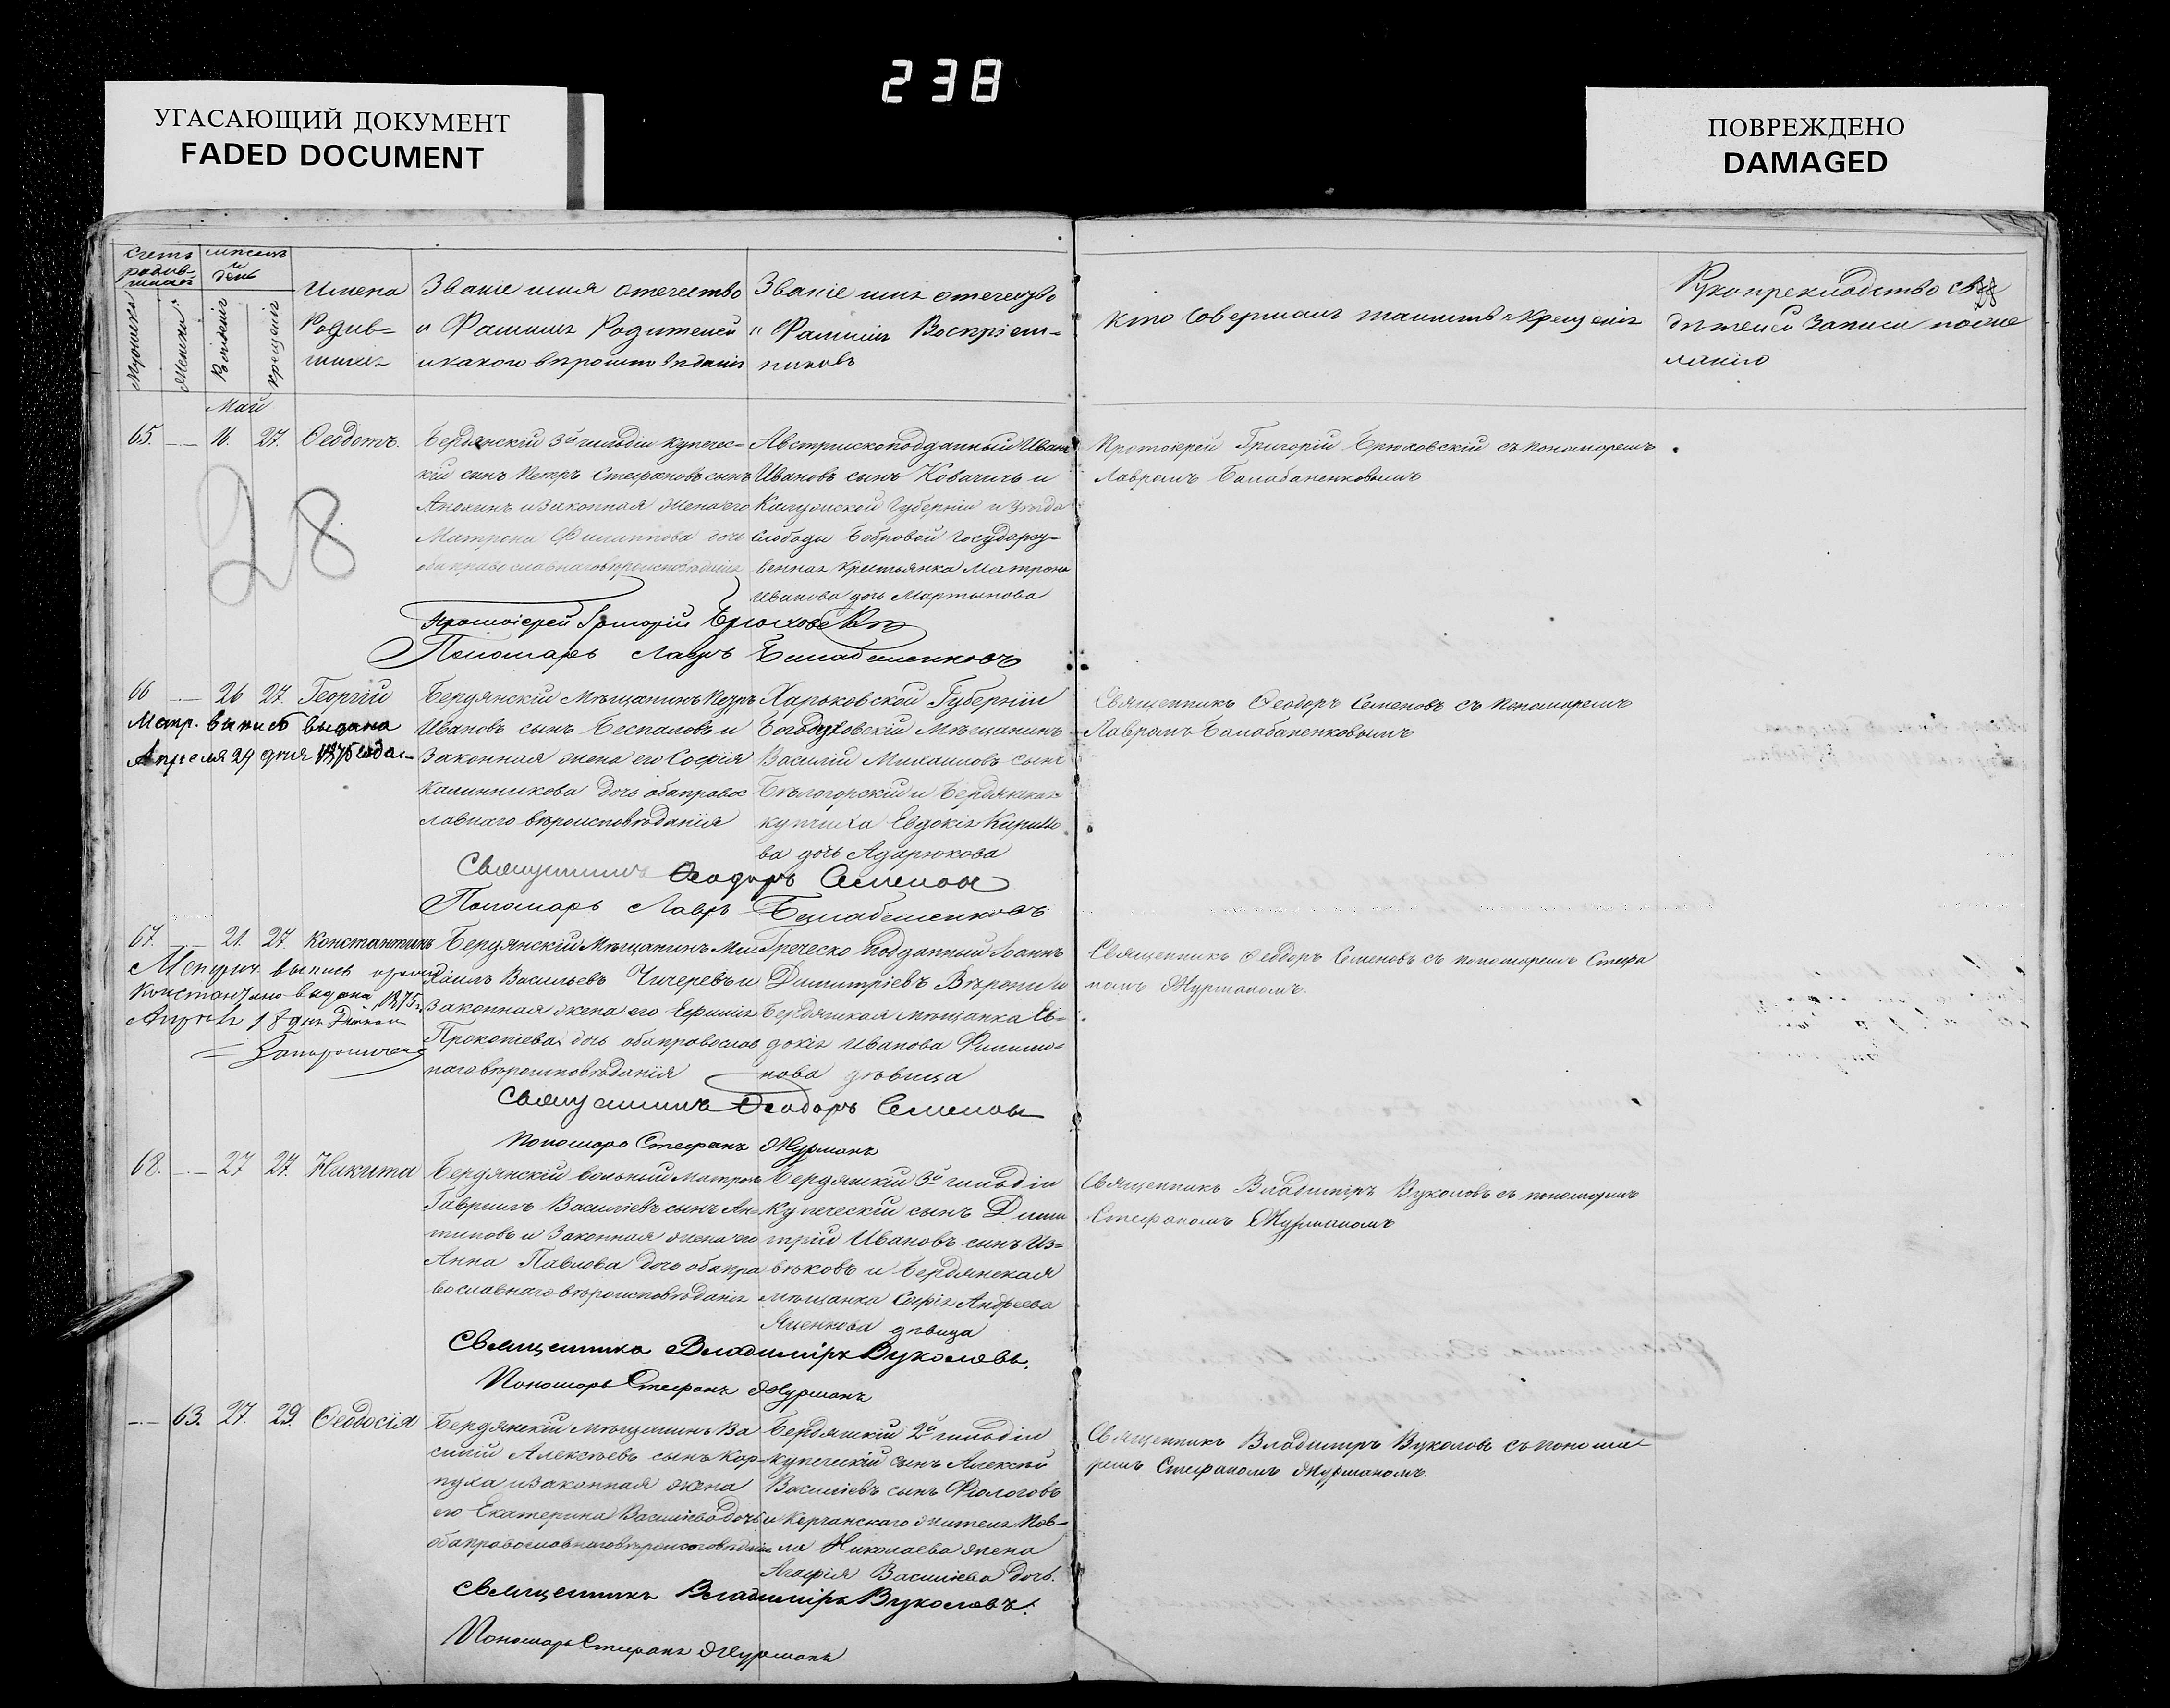 238
УГАСАЮЩИЙ ДОКУМЕНТ
FADED DOCUMENT
ПОВРЕЖДЕНО
DAMAGED
Счетъ родив-шихся
Мужеска
Женска
мѣсяцъ и день
Рожденія
крещенія
Имена
Родив=
шихся
Званіе имя отечество
и Фамилія Родителей
и какого вѣроисповѣданія
Званіе имя отечество
и Фамилія Воспріем-
никовъ
Кто Совершалъ таинство крещенія
Рукоприкладство сви
дѣтелей записи по же
ланію
Май
65. 16. 27. Ѳеодотъ.
Бердянскій 3й гильдіи купечес=
кій сынъ Петръ Стефановъ сынъ
Анохинъ и законная жена его
Матрона Филиппова дочь
оба православнаго вѣроисповѣданія
Австрійскоподданный Иванъ
Ивановъ сынъ Ковачичъ и
Калужской Губерніи и Уѣзда
слободы Бобровой Государст=
венная крестьянка Матрона
Иванова дочь Мартынова
Протоіерей Григорій Брюховскій съ пономоремъ
Лавромъ Балабаненковымъ
28
Протоіерей Григорій Брюховскій
Пономарь Лавръ Балабаненковъ
66 26 27. Георгій
Метр. выпись выдана
Апреля 29 дня 1875 года
Бердянскій Мѣщанинъ Петръ
Ивановъ сынъ Беспаловъ и
Законная жена его Софія
Калинникова дочь оба правос
лавнаго вѣроисповѣданія
Харьковской Губерніи
Богодуховскій Мѣщанинъ
Василій Михаиловъ сынъ
Бѣлогорскій и Бердянская
купчиха Евдокія Кирило
ва дочь Адарюкова
Священникъ Ѳеодоръ Семеновъ съ пономоремъ
Лавромъ Балабаненковымъ
Священникъ Ѳеодоръ Семеновъ
Пономарь Лавръ Балабаненковъ
67. 21. 27. Константинъ
Метрич. выпись
Константину выдана 1875 г.
Апреля 18 дня Дьякон
Бердянскій Мѣщанинъ Ми
хаилъ Васильевъ Чичеревъ и
Законная жена его Ефимія
Прокопіева дочь оба православ
наго вѣроисповѣданія
Греческо подданный Іоаннъ
Димитріевъ и
Бердянская мѣщанка Ев=
докія Иванова Филимо=
нова дѣвица
Священникъ Ѳеодоръ Семеновъ съ пономоремъ Стефа
номъ Журманомъ.
Священникъ Ѳеодоръ Семеновъ
Пономарь Стефанъ Журманъ
68. 27 27. Никита
Бердянскій вольный матрозъ
Гавріилъ Василіевъ сынъ Ан=
типовъ и Законная жена его
Анна Павлова дочь оба пра
вославнаго вѣроисповѣданія
Бердянскій 3й гильдіи
Купеческій сынъ Дими
трій Ивановъ сынъ Из=
вѣковъ и Бердянская
мѣщанка Софія Андреева
Яценкова дѣвица
Священникъ Владиміръ Вуколовъ съ пономоремъ
Стефаномъ Журманомъ
Священникъ Владиміръ Вуколовъ.
Пономарь Стефанъ Журманъ
63. 27. 29. Ѳеодосія
Бердянскій мѣщанинъ Ва
силій Алексѣевъ сынъ Кор=
пуха и законная жена
его Екатерина Василіева дочь
оба православнаго вѣроисповѣданія
Бердянскій 2й гильдіи
купеческій сынъ Алексѣй
Василіевъ сынъ Фіологовъ
и Керчанскаго жителя Пав=
ла Николаева жена
Агафія Василіева дочь.
Священникъ Владиміръ Вуколовъ съ понома
ремъ Стефаномъ Журманомъ.
Священникъ Владиміръ Вуколовъ.
Пономарь Стефанъ Журманъ